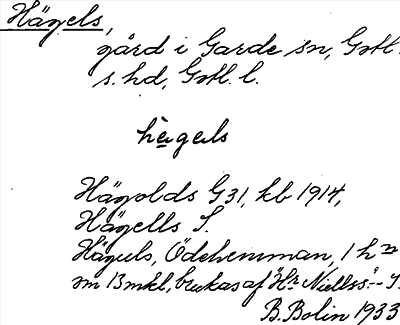 Hägels,
gård i Garde sn, Gotl.
s. hd, Gotl. l.
hègels
Hägolds G 31, kb 1914,
Hägells S.
Häguls, Ödehemman, 1 hm
sm 13 mkl, brukas af "Hr Niellss"
B. Bolin 1933